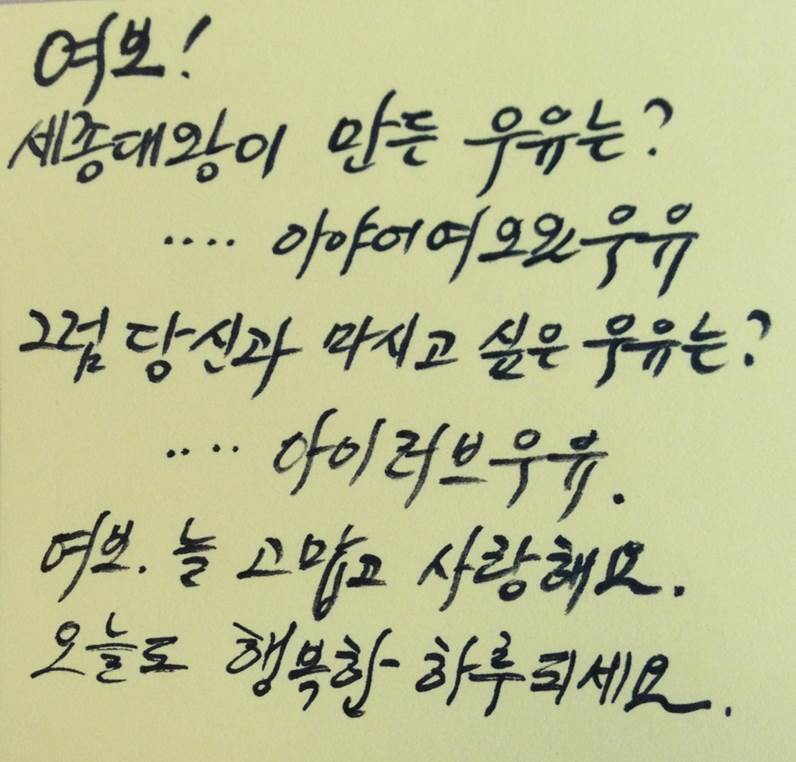 여보!
세종대왕이 만든 우유는?
.... 아야어여오요우유
그럼 당신과 마시고 싶은 우유는?
.... 아이러브우유.
여보. 늘 고맙고 사랑해요.
오늘도 행복한 하루 되세요.